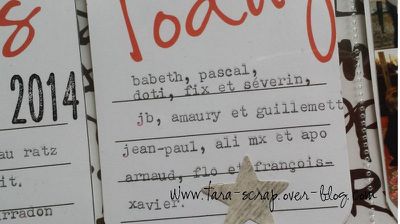 Today
2014
babeth, pascal,
doti, fix et séverin,
jb, amaury et guillemett
jean-paul, ali mx et apo
arnaud, flo et françois-
xavier.
au ratz
it.
rradon
www.tara-scrap.over-blog.com